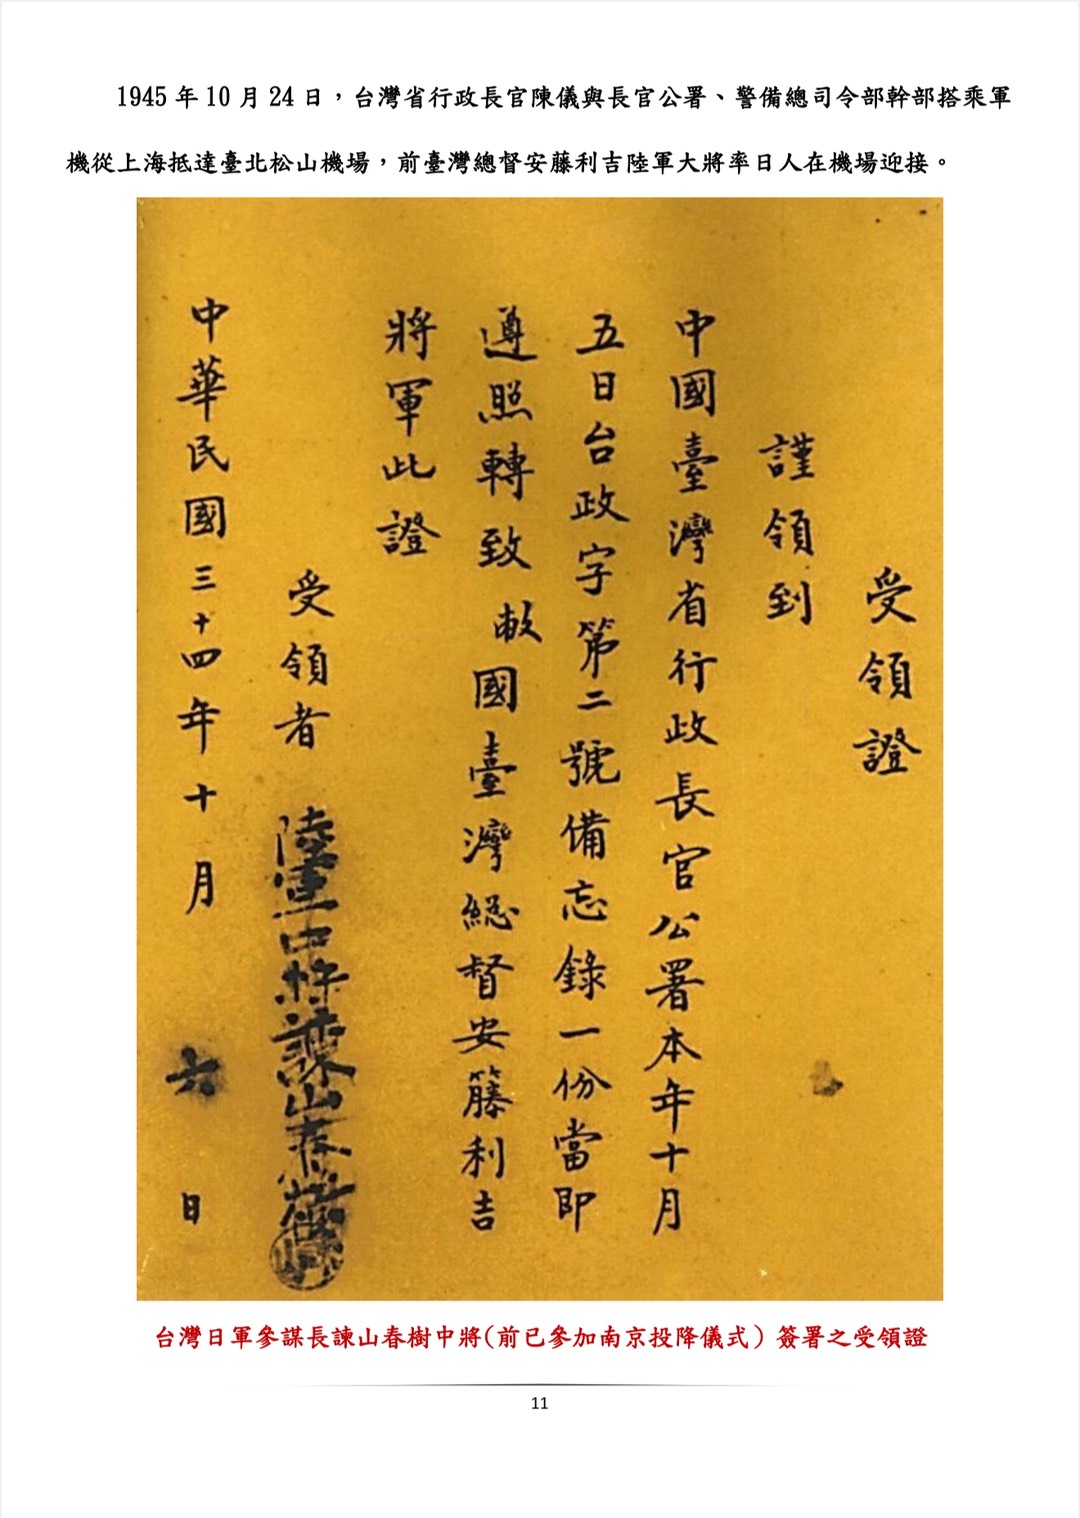 1945 年 10 月 24 日，台灣省行政長官陳儀與長官公署、警備總司令部幹部搭乘軍
機從上海抵達臺北松山機場，前臺灣總督安藤利吉陸軍大將率日人在機場迎接。
受領證
謹領到
中國臺灣省行政長官公署本年十月
五日台政字第二號備忘錄一份當即
遵照轉致敝國臺灣総督安籐利吉
將軍此證
受領者 陸軍中將諫山春樹
中華民國三十四年十月六日
台灣日軍參謀長諫山春樹中將(前已參加南京投降儀式) 簽署之受領證
11